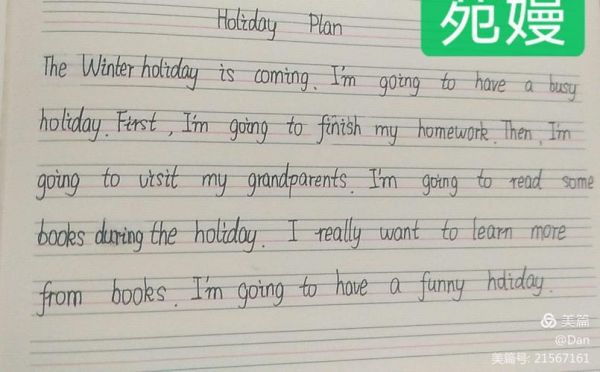 苑嫚
Holiday Plan
The Winter holiday is coming. I'm going to have a busy
holiday. First, I'm going to finish my homework. Then, I'm
going to visit my grandparents. I'm going to read some
books during the holiday. I really want to learn more
from books. I'm going to have a funny holiday.
美篇
@Dan
美篇号: 21567161